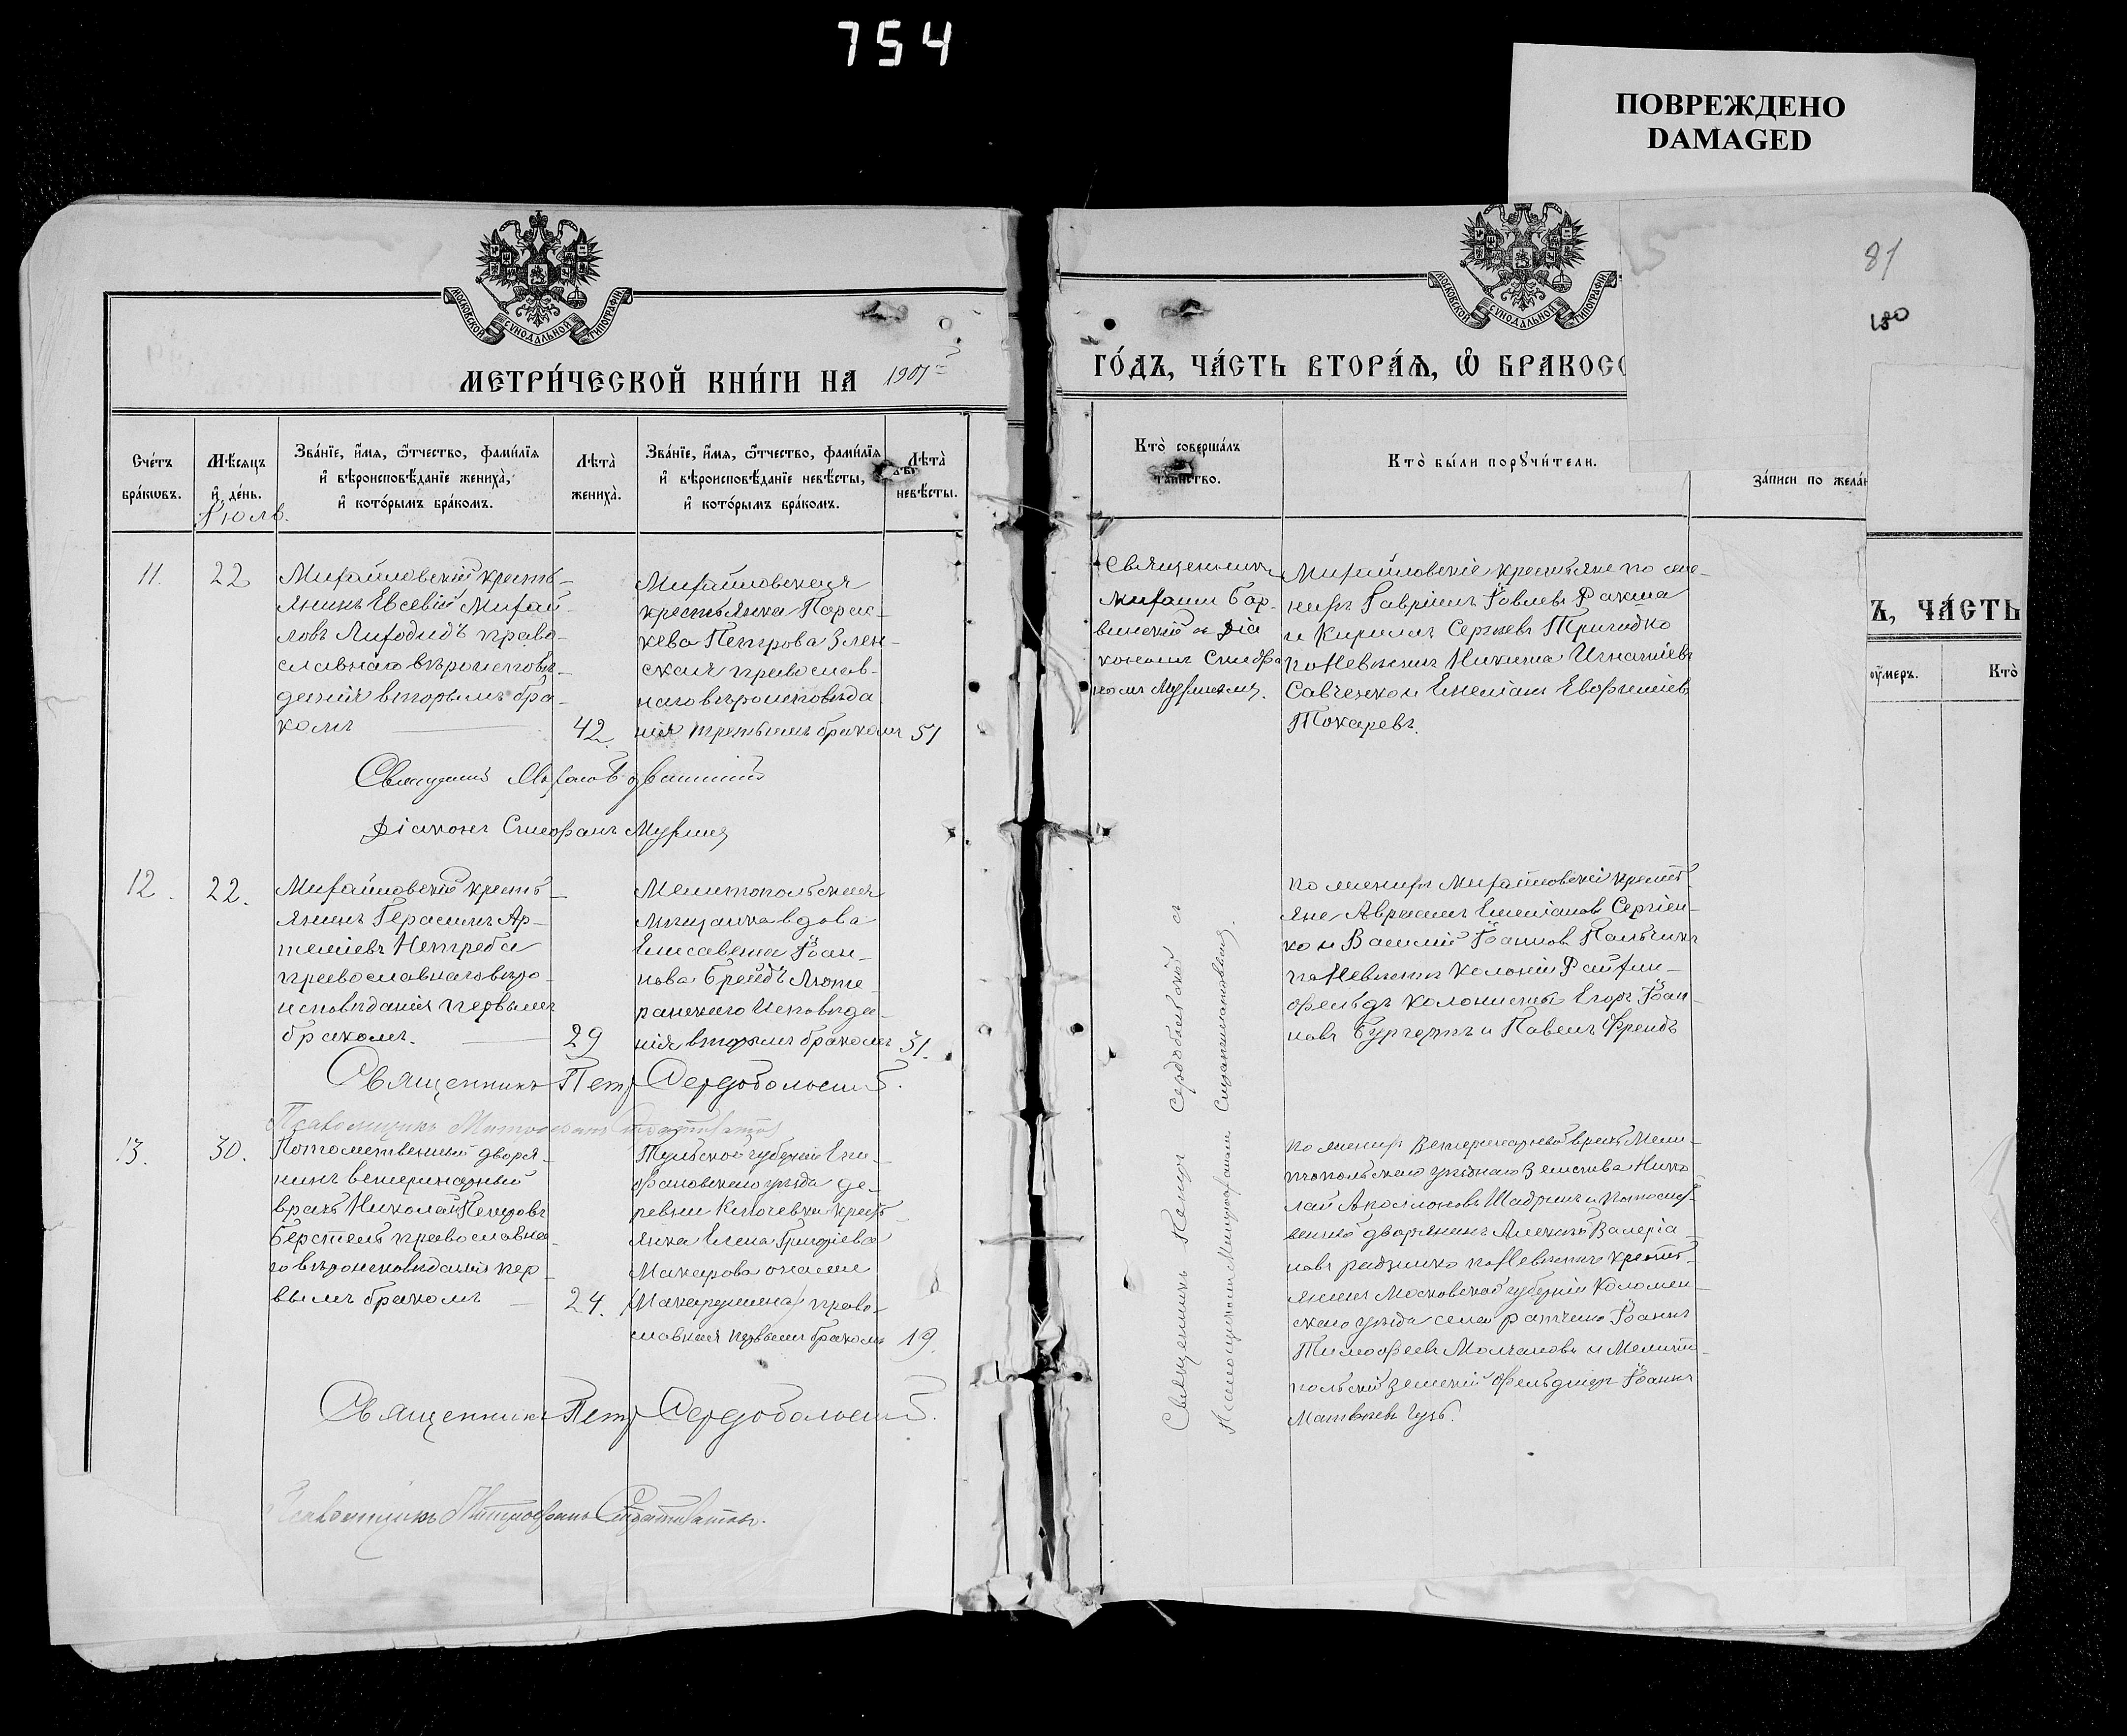 754
ПОВРЕЖДЕНО
DAMAGED
81
180
МОСКОВСКОЙ СУНОДАЛЬНОЙ ТИПОГРАФІИ
МОСКОВСКОЙ СУНОДАЛЬНОЙ ТИПОГРАФІИ
МЕТРИ́ЧЕСКОЙ КНИ́ГИ НА 1901
ГО́ДЪ, ЧА́СТЬ ВТОРА́Я, Ѡ БРАКОСО
Сче́тъ бра́кωвъ.
Мѣ́сяцъ и҆ де́нь.
Зва́нїе, и҆́мя, ѻ҆́тчество, фами́лїя и҆ вѣроисповѣ́данїе жениха̀, и҆ кото́рымъ бра́комъ.
Лѣта̀ жениха̀.
Зва́нїе, и҆́мя, ѻ҆́тчество, фами́лїя и҆ вѣроисповѣ́данїе невѣ́сты, и҆ кото́рымъ бра́комъ.
Лѣта̀ невѣ́сты.
Кто̀ соверша́лъ та́инство.
Кто̀ бы́ли порꙋчи́тели.
за́писи по жела́н
Ъ, ЧА́СТЬ
ѹ҆́меръ.
Кто̀
Іюль.
11.
22
Михайловскій кресть-
янинъ Евсевій Михай-
ловъ Лиходидъ право-
славнаго вѣроисповѣ-
данія вторымъ бра-
комъ
42.
Михайловская
крестьянка Парас-
кева Петрова Злен-
ская православ-
наго вѣроисповѣда
нія третьимъ бракомъ
51
Священникъ
Михаилъ Бар-
винскій и діа
кономъ Стефа
номъ
Михайловскіе крестьяне по же-
ниху Гавріилъ Іовлевъ Ракша
и Кириллъ Сергѣевъ Тригидко
по невѣстѣ Никита Игнатіевъ
Савченко и Емеліанъ Евфиміевъ
Токаревъ.
Священникъ Михаилъ Барвинскій
Діаконъ Стефанъ
12.
22.
Михайловскій кресть-
янинъ Герасимъ Ар-
теміевъ Нетреба
православнаго вѣро-
исповѣданія первымъ
бракомъ.
29
Мелитопольская
мѣщанка вдова
Елисавета Іоан-
нова Брейдъ Люте-
ранскаго исповѣда-
нія вторымъ бракомъ
31.
по жениху Михайловскіе кресть-
яне Авраамъ Емеліановъ Сергіен-
ко и Василій Іоанновъ Пальчикъ
по невѣстѣ колоніи Райхен-
фельдъ колонисты Егоръ Іоан-
новъ Бургардтъ и Павелъ Фрейдъ
Священникъ Петръ Сердобольскій.
Псаломщикъ Митрофанъ
Священникъ Петръ Сердобольскій съ
Псаломщикомъ Митрофаномъ
13.
30.
Потомственный дворя-
нинъ ветеринарный
врачъ Николай Петровъ
Берстель православна-
го вѣроисповѣданія пер-
вымъ бракомъ
24.
Тульской губерніи Епи-
фановскаго уѣзда де-
ревни Ключевки кресть-
янка Елена Григоріева
Макарова она же
(Макарушина) право-
славная первымъ бракомъ
19.
по жениху ветеринарный врачъ Мели-
топольскаго уѣзднаго Земства Нико-
лай Аполлоновъ Шадринъ и потомст-
венный дворянинъ Алексій Валеріа-
новъ по невѣстѣ кресть-
янинъ Московской губерніи Коломен-
скаго уѣзда села Іоаннъ
Тимофеевъ Молчановъ и Мелито-
польскій земскій фельдшеръ Іоаннъ
Матвѣевъ Гузь.
Священникъ Петръ Сердобольскій.
Псаломщикъ Митрофанъ